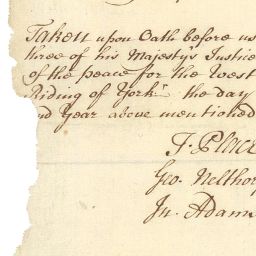 Taken upon Oath before us
three of his Majesty's Justice
of the peace for the West
Riding of York: the day
and Year above mentioned
J. Place
Geo. Nelthor
Jn. Adam